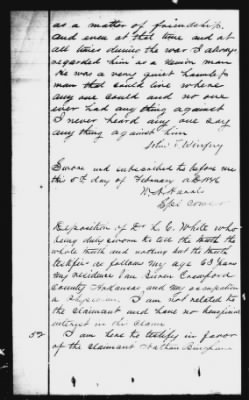 as a matter of friendship.
And even at that time and at
all times during the war I always
regarded him as a Union man
He was a very quiet harmless
man that could live where
any one could and no one
ever had any thing against
I never heard any one say
any thing against him
John T. Winfrey
Sworn and subscribed to before me
this 5th day of February
Spl Comr
Deposition of Dr L. C. White who
being duly sworn to tell the truth the
whole truth and nothing but the truth
testifies as follows My age 63 years
My residence Van Buren Crawford
County Arkansas and my occupation
a Physician. I am not related to
the claimant and have no beneficial
interest in the claim.
I am here to testify in favor
of the claimant Nathan Bingham